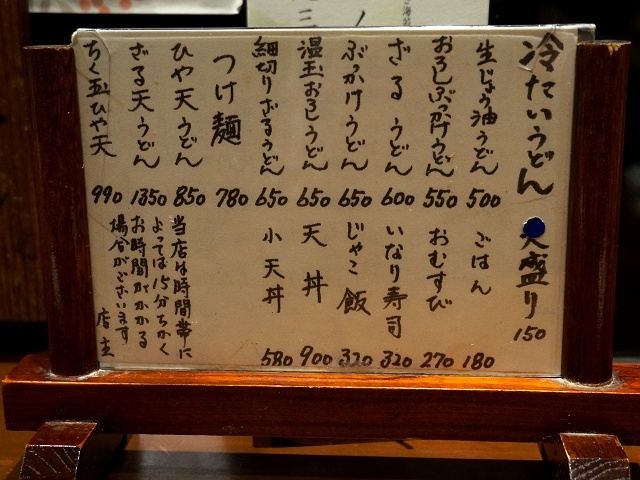 冷たいうどん
大盛り 150
生じょう油うどん 500
おろしぶっかけうどん 550
ざるうどん 600
ぶっかけうどん 650
温玉おろしうどん 650
細切りざるうどん 650
つけ麺 780
ひや天うどん 850
ざる天うどん 1350
ちく玉ひや天 990
ごはん 180
おむすび 270
いなり寿司 320
じゃこ飯 320
天丼 900
小天丼 580
当店は時間帯に
よっては15分ちかく
お時間がかかる
場合がございます
店主